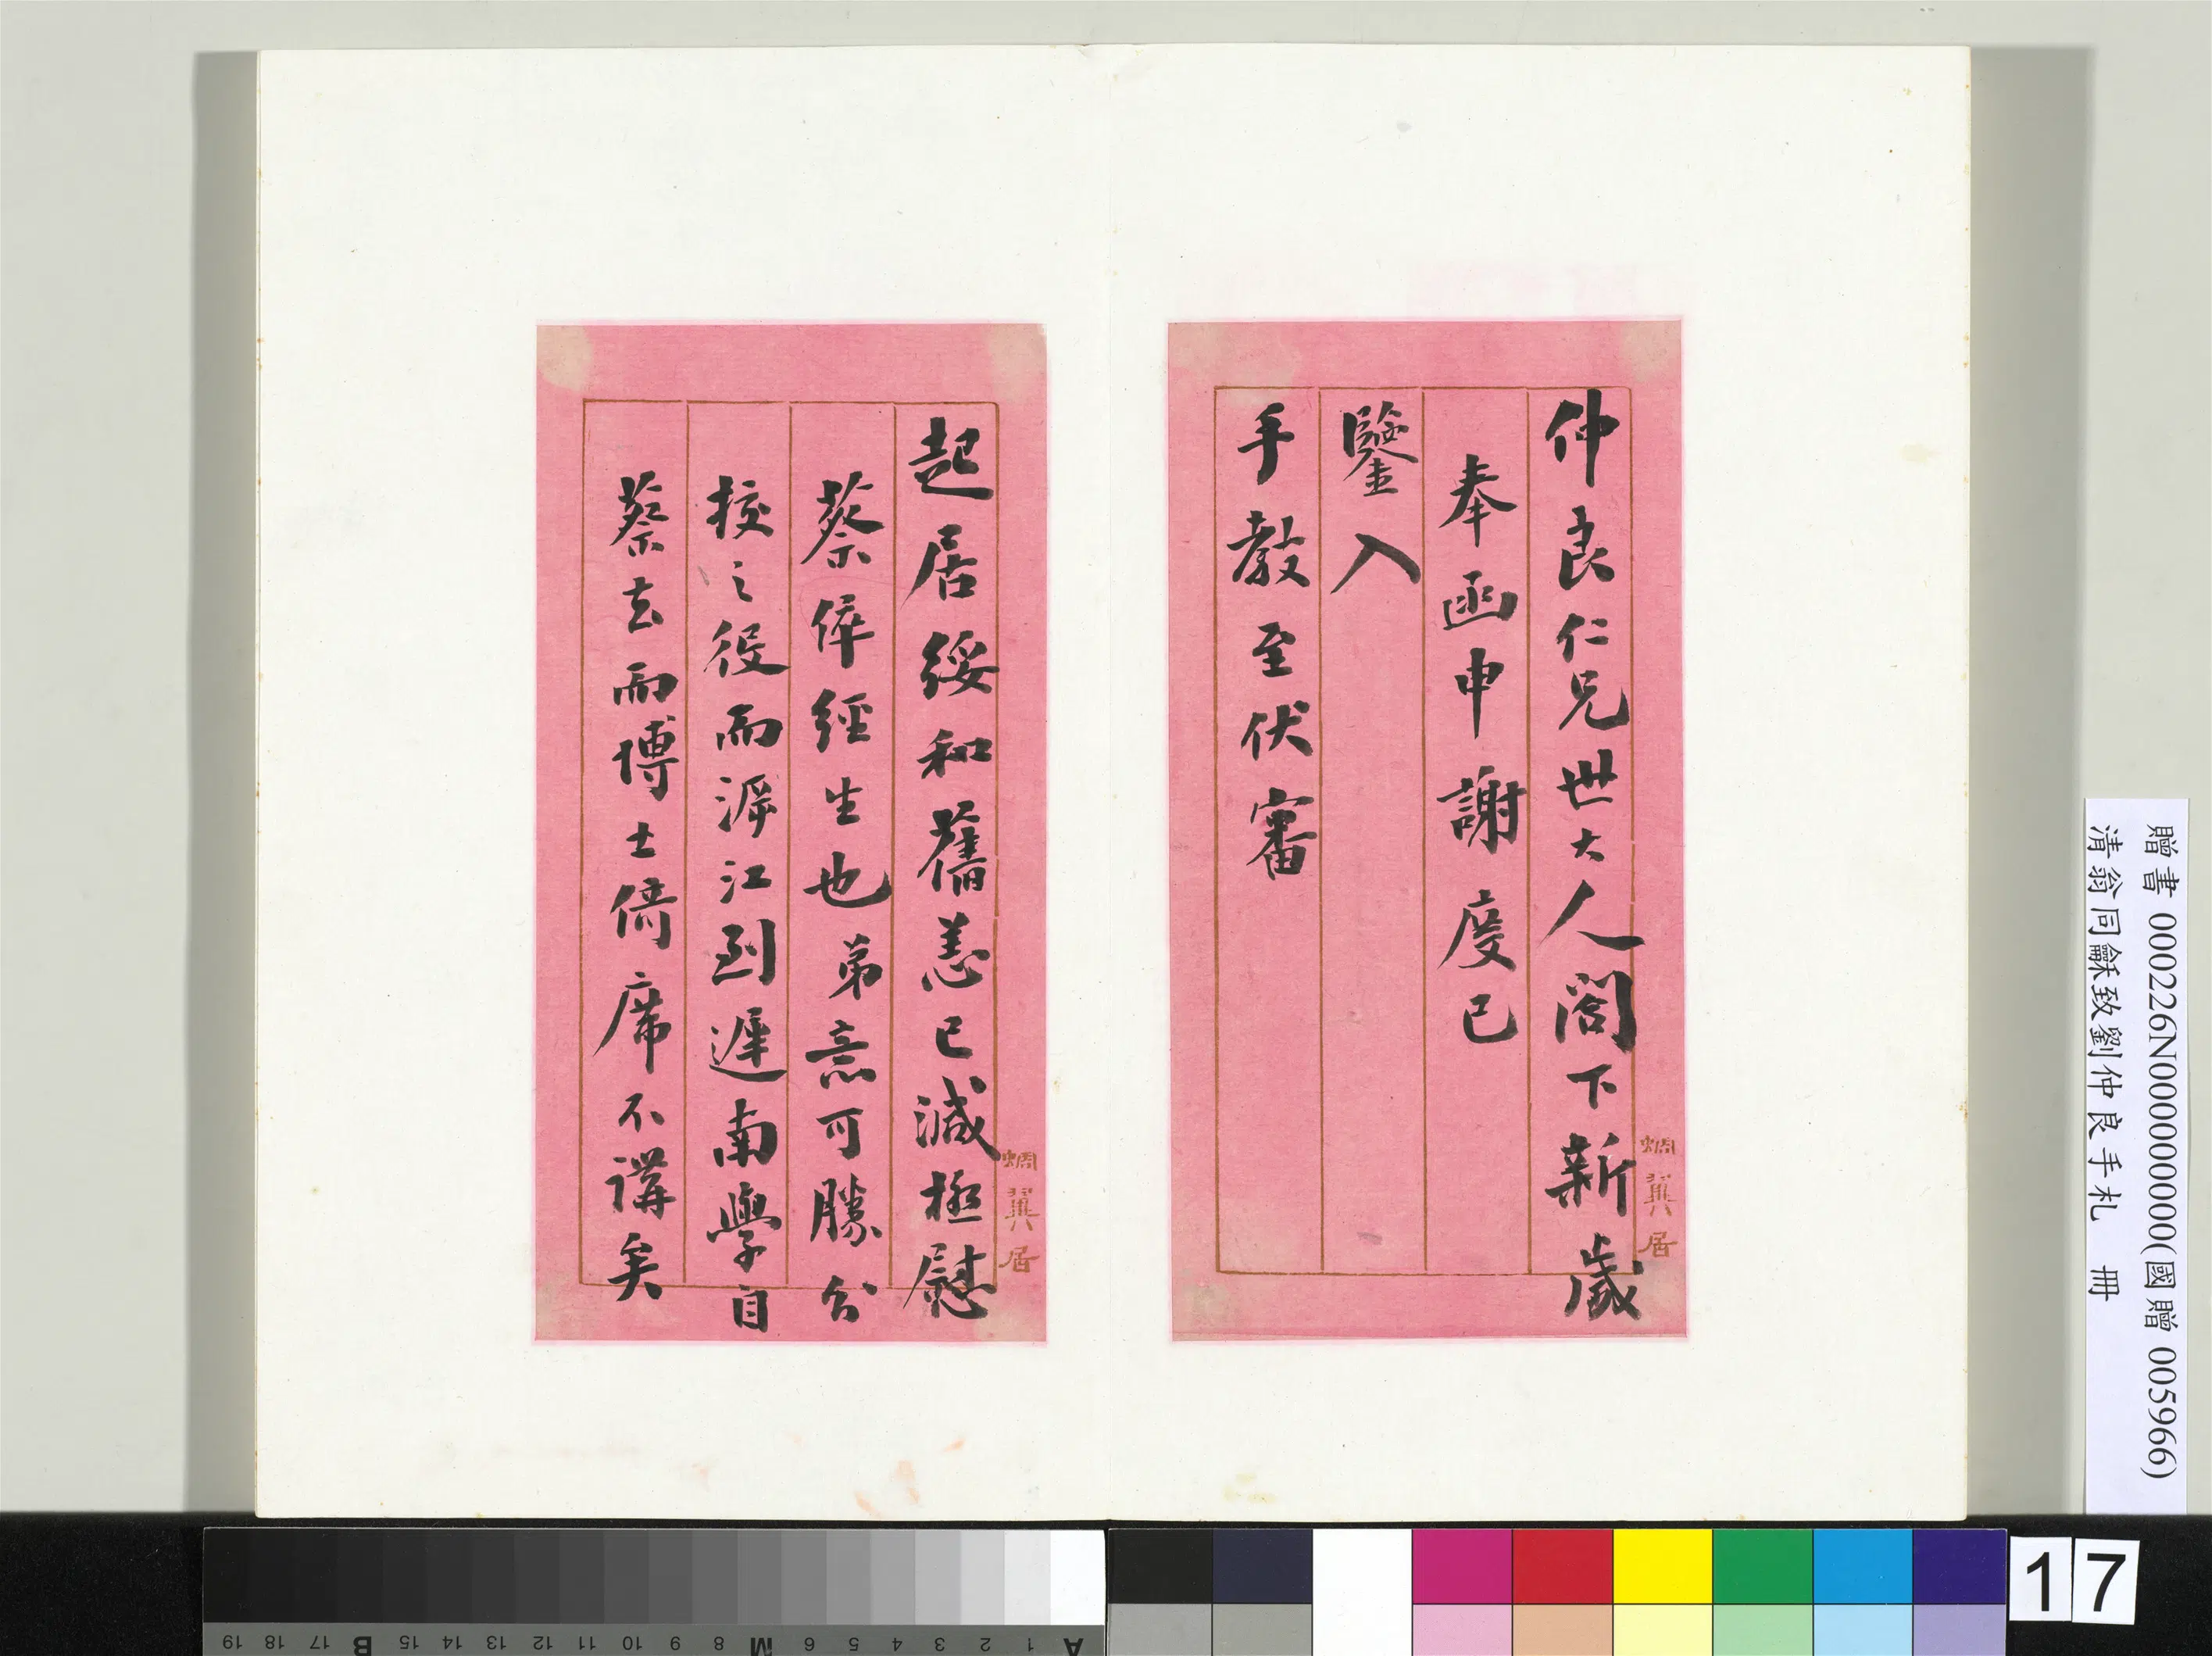 仲良仁兄世大人閣下新歲
奉函申謝度已
鑒入
手教至伏審
蜩翼居
起居綏和舊恙已減極慰
蔡倅經生也弟意可勝分
挍之役而游江到遲南學自
蔡去而博士倚席不講矣
蜩翼居
贈書 000226N000000000(國贈 005966)
清翁同龢致劉仲良手札 冊
17
A 1 2 3 4 5 6 M 8 9 10 11 12 13 14 15 B 17 18 19